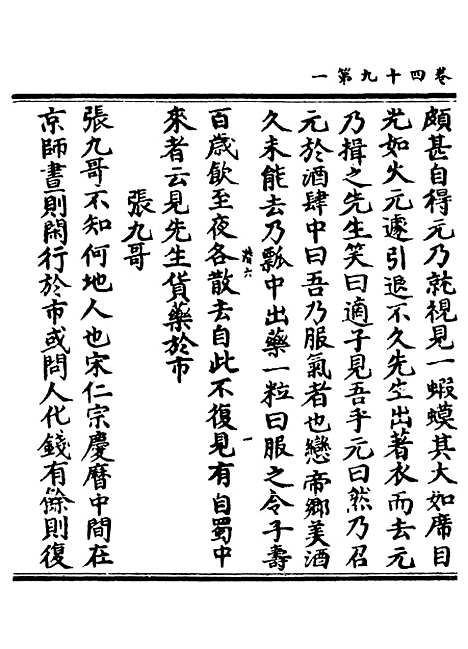 卷四十九第一
頗甚自得元乃就視見一蝦蟆其大如席目
光如火元遽引退不久先生出著衣而去元
乃揖之先生笑曰適子見吾乎元曰然乃召
元於酒肆中曰吾乃服氣者也戀帝鄉美酒
久未能去乃瓢中出藥一粒曰服之令子壽
拾六
一
百歲飲至夜各散去自此不復見有自蜀中
來者云見先生貨藥於市
張九哥
張九哥不知何地人也宋仁宗慶曆中間在
京師晝則閑行於市或問人化錢有餘則復